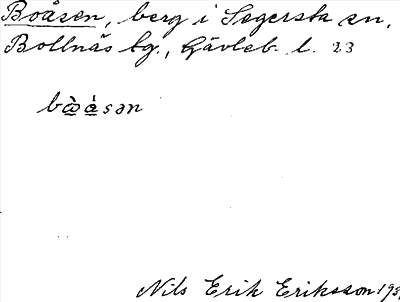 Boåsen, berg i Segersta sn,
Bollnäs tg., Gävleb. l. 23
bὼå̀sən
Nils Erik Eriksson 193